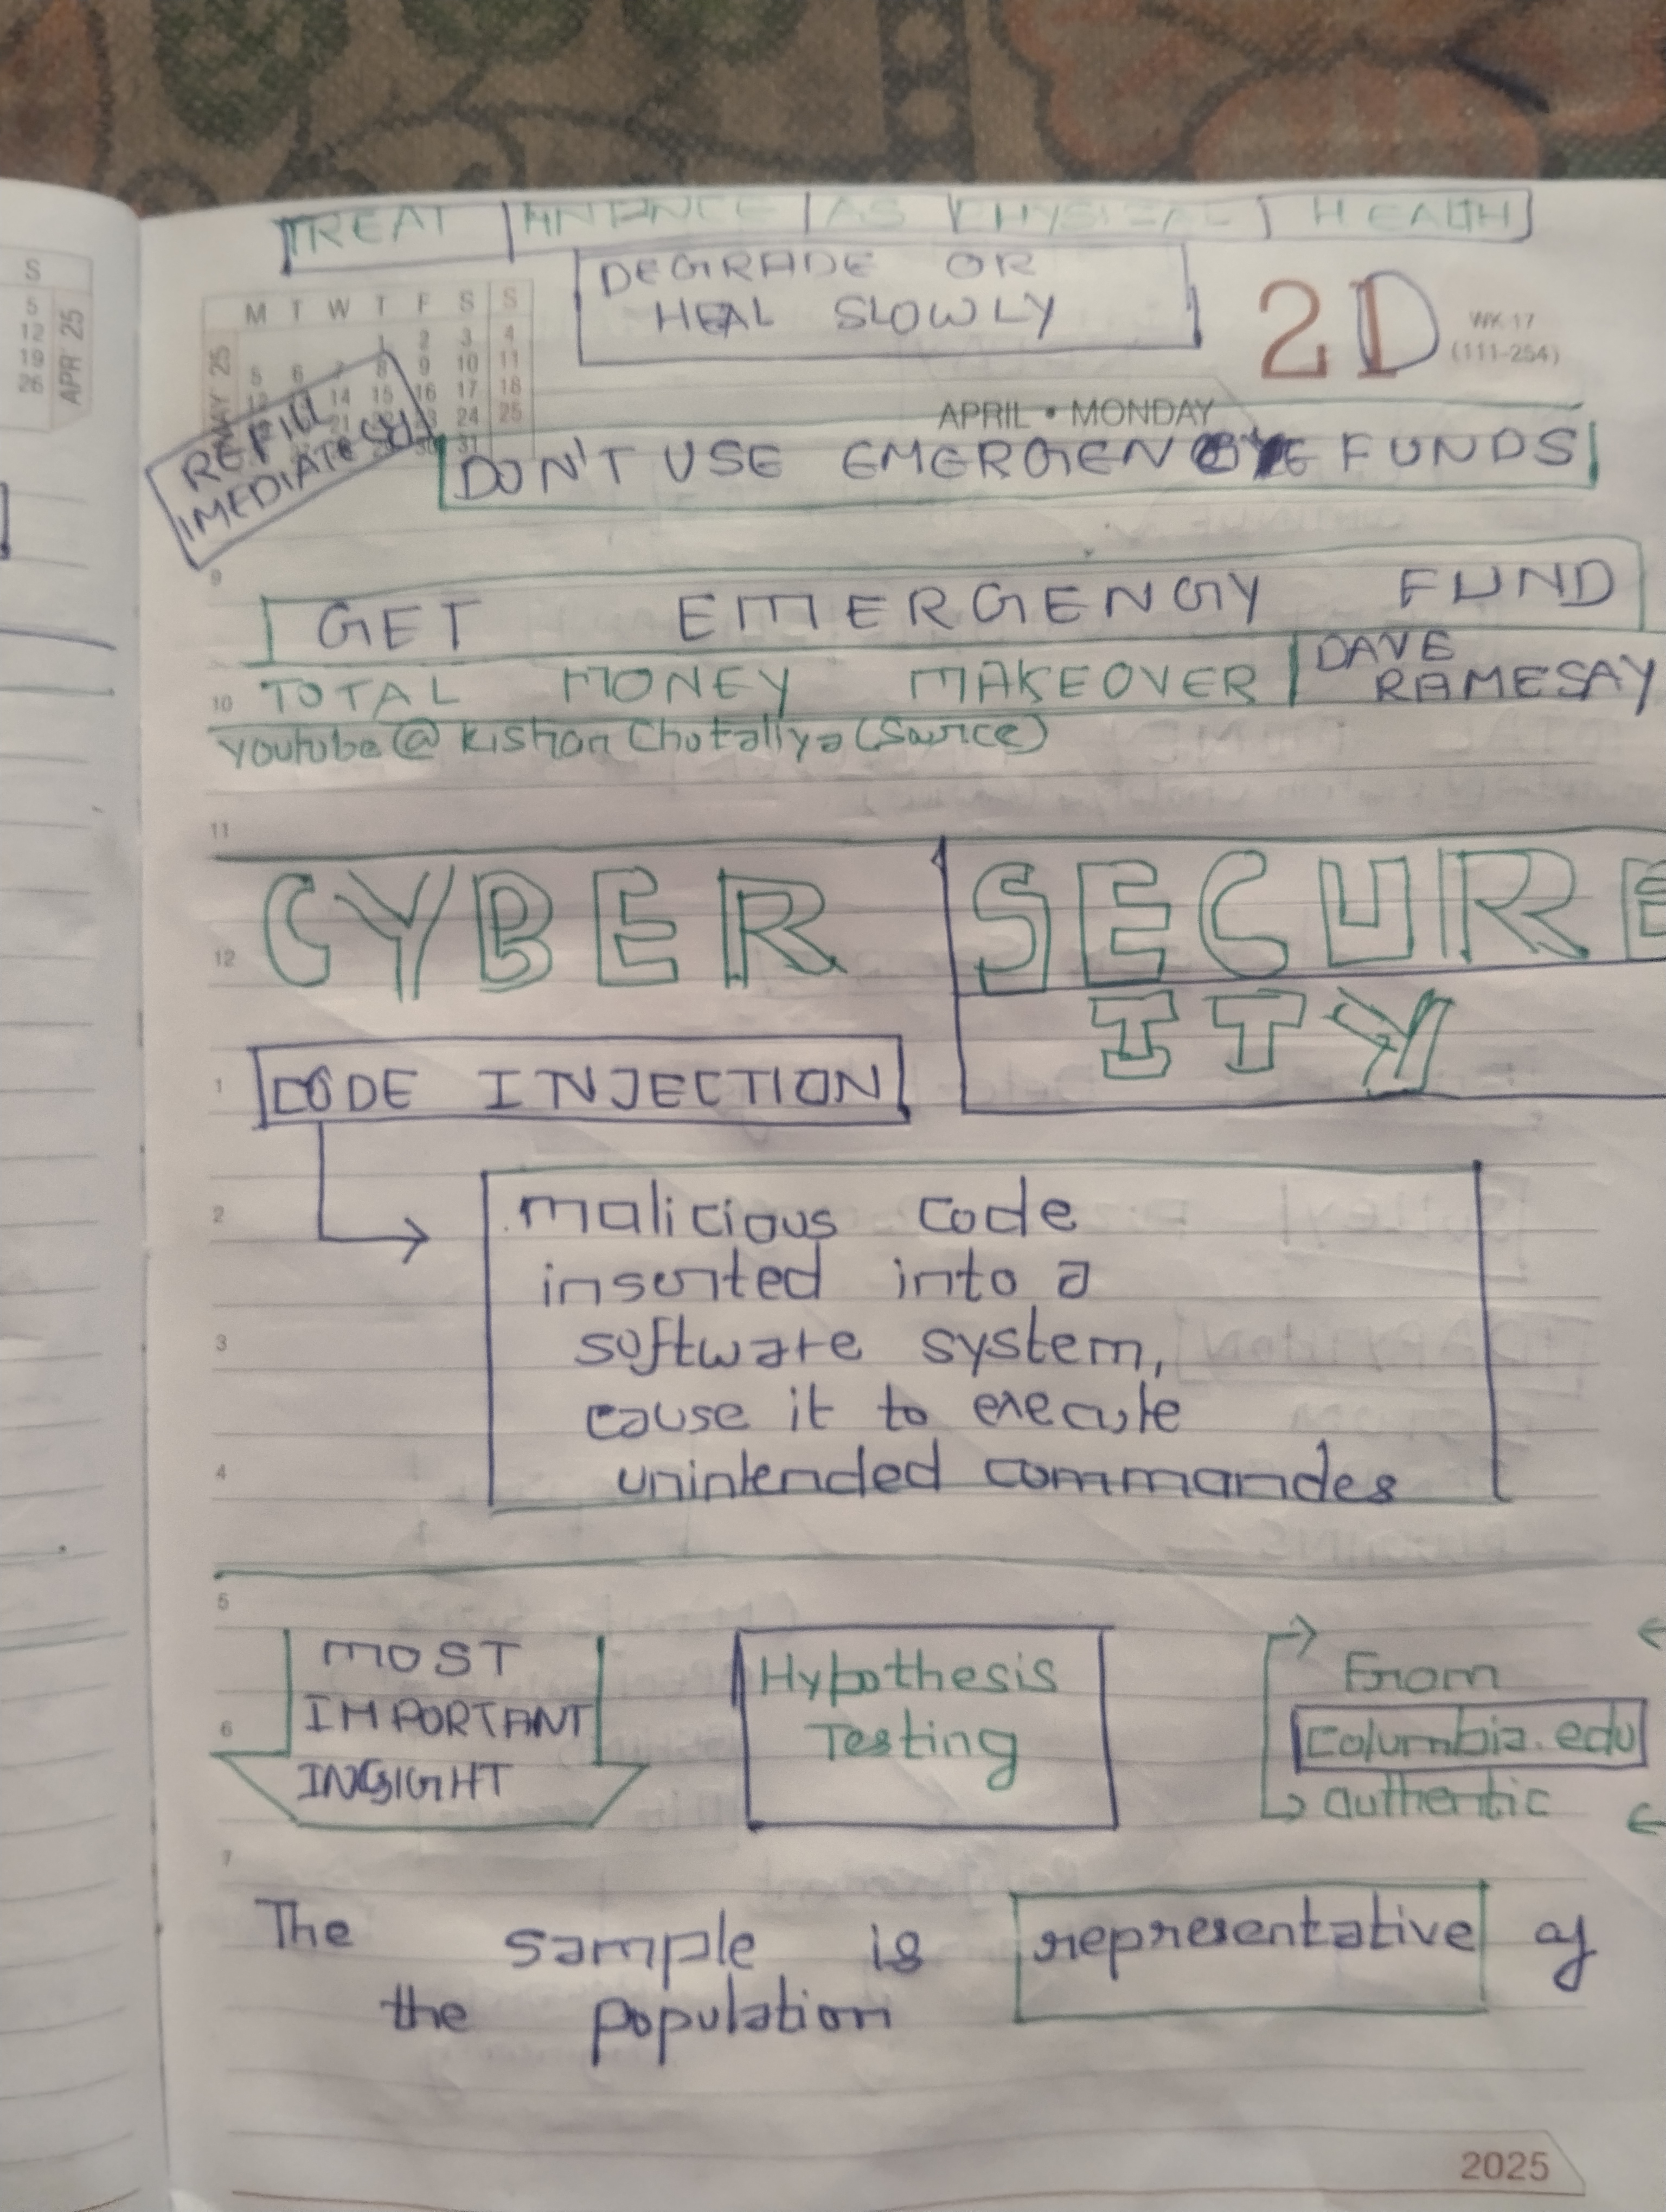 TREAT FINANCE AS PHYSICAL HEALTH
DEGRADE OR
HEAL SLOWLY
21
WK 17
(111-254)
S
5
12
19
26
APR 25
M T W T F S S
MAY 25
1 2 3 4
5 6 7 8 9 10 11
12 14 15 16 17 18
21 24 25
31
APRIL • MONDAY
REFILL
IMEDIATELY
DON'T USE EMERGEN FUNDS
9
GET EMERGENGY FUND
10 TOTAL MONEY MAKEOVER
DAVE
RAMESAY
Youtube @ Kishan Chotaliya (Source)
11
CYBER SECURE
12
ITY
1 CODE INJECTION
2 malicious code
inserted into a
3 software system,
cause it to execute
4 unintended commandes
5
MOST
IMPORTANT
INSIGHT
6
Hypothesis
Testing
From
Columbia.edu
authentic
7
The sample is representative of
the population
2025